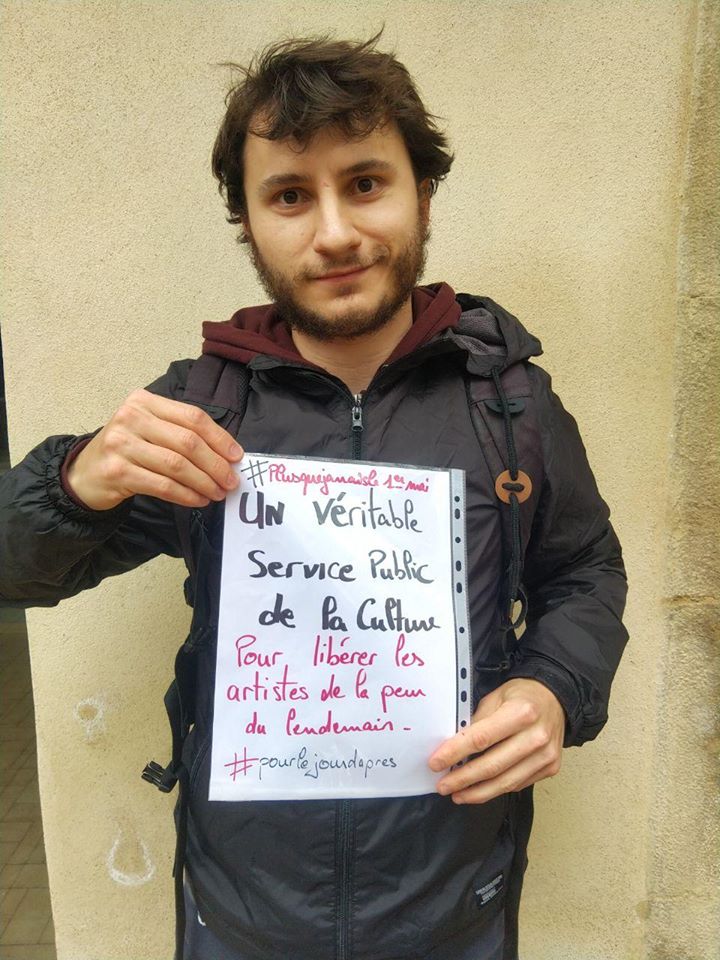 #Plusquejamaisle 1er mai
Un Véritable
Service Public
de la Culture
Pour libérer les
artistes de la peur
du lendemain.
#pourlejourdapres